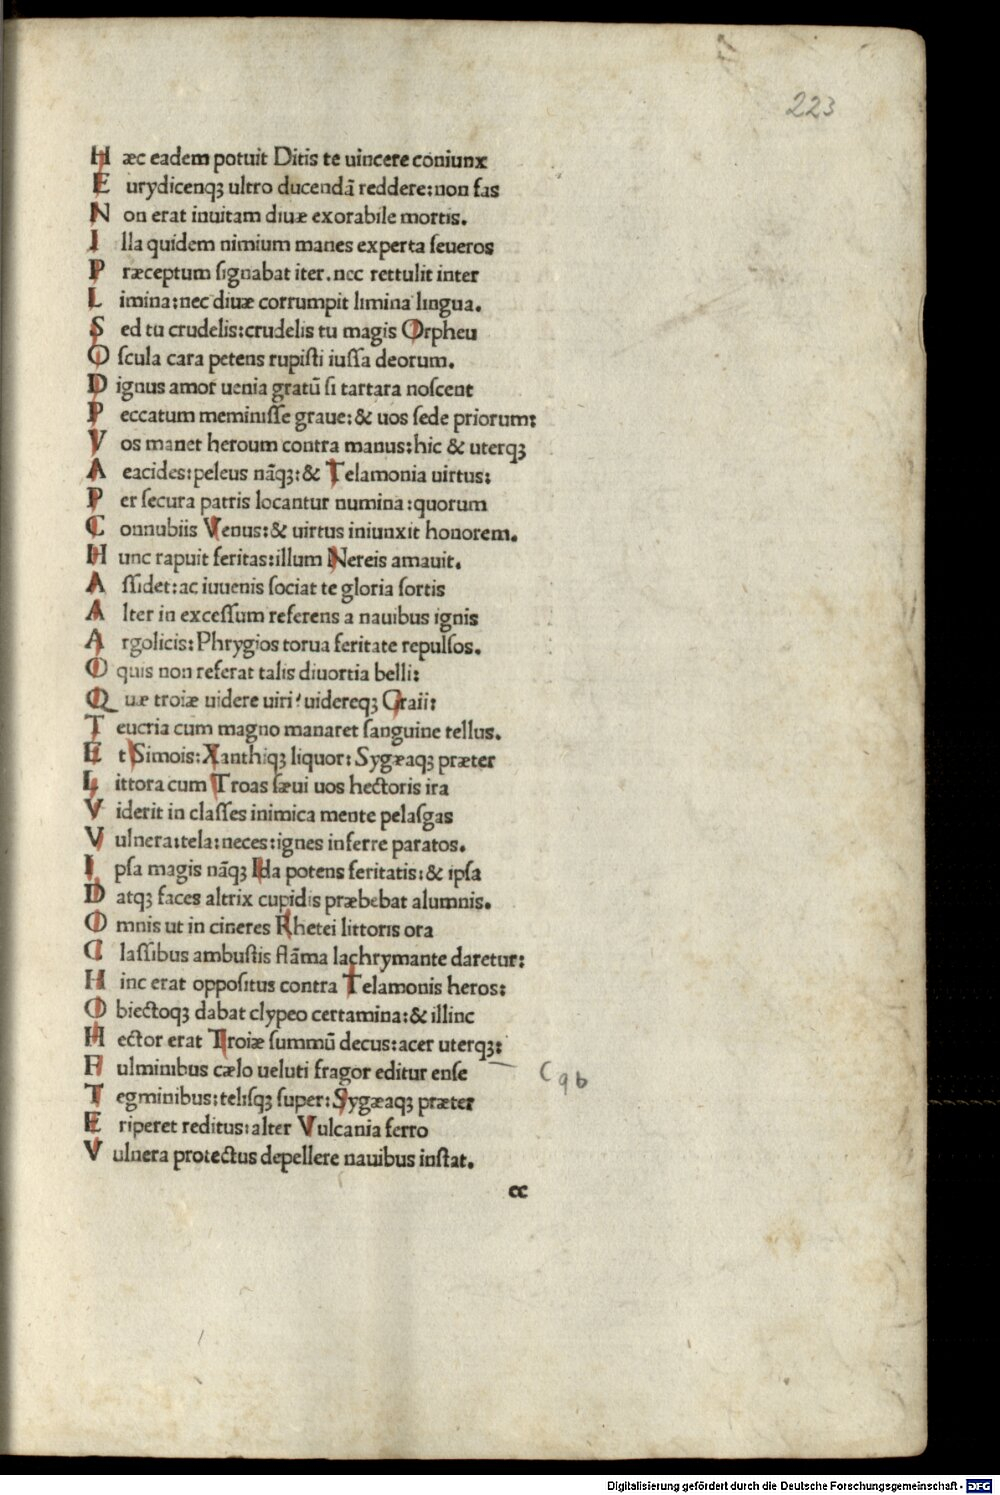 223
Hæc eadem potuit Ditis te uincere coniunx
Eurydicenqꝫ ultro ducendā reddere: non fas
Non erat inuitam diuæ exorabile mortis.
Illa quidem nimium manes experta ſeueros
Præceptum ſignabat iter. nec rettulit inter
Limina: nec diuæ corrumpit limina lingua.
Sed tu crudelis: crudelis tu magis Orpheu
Oſcula cara petens rupiſti iuſſa deorum.
Dignus amor uenia gratū ſi tartara noſcent
Peccatum meminiſſe graue: & uos ſede priorum:
Vos manet heroum contra manus: hic & uterqꝫ
Aeacides: peleus nāqꝫ: & Telamonia uirtus:
Per ſecura patris locantur numina: quorum
Connubiis Venus: & uirtus iniunxit honorem.
Hunc rapuit feritas: illum Nereis amauit.
Aſſidet: ac iuuenis ſociat te gloria ſortis
Alter in exceſſum referens a nauibus ignis
Argolicis: Phrygios torua feritate repulſos.
O quis non referat talis diuortia belli:
Quæ troiæ uidere uiri? uidereqꝫ Graii:
Teucria cum magno manaret ſanguine tellus.
Et Simois: Xanthiqꝫ liquor: Sygæaqꝫ præter
Littora cum Troas ſæui uos hectoris ira
Viderit in claſſes inimica mente pelaſgas
Vulnera: tela: neces: ignes inferre paratos.
Ipſa magis nāqꝫ Ida potens feritatis: & ipſa
Datqꝫ faces altrix cupidis præbebat alumnis.
Omnis ut in cineres Rhetei littoris ora
Claſſibus ambuſtis flāma lachrymante daretur:
Hinc erat oppoſitus contra Telamonis heros:
Obiectoqꝫ dabat clypeo certamina: & illinc
Hector erat Troiæ ſummū decus: acer uterqꝫ:
Fulminibus cælo ueluti fragor editur enſe
Tegminibus: teliſqꝫ ſuper: Sygæaqꝫ præter
Eriperet reditus: alter Vulcania ferro
Vulnera protectus depellere nauibus inſtat.
cc
Digitalisierung gefördert durch die Deutsche Forschungsgemeinschaft - DFG